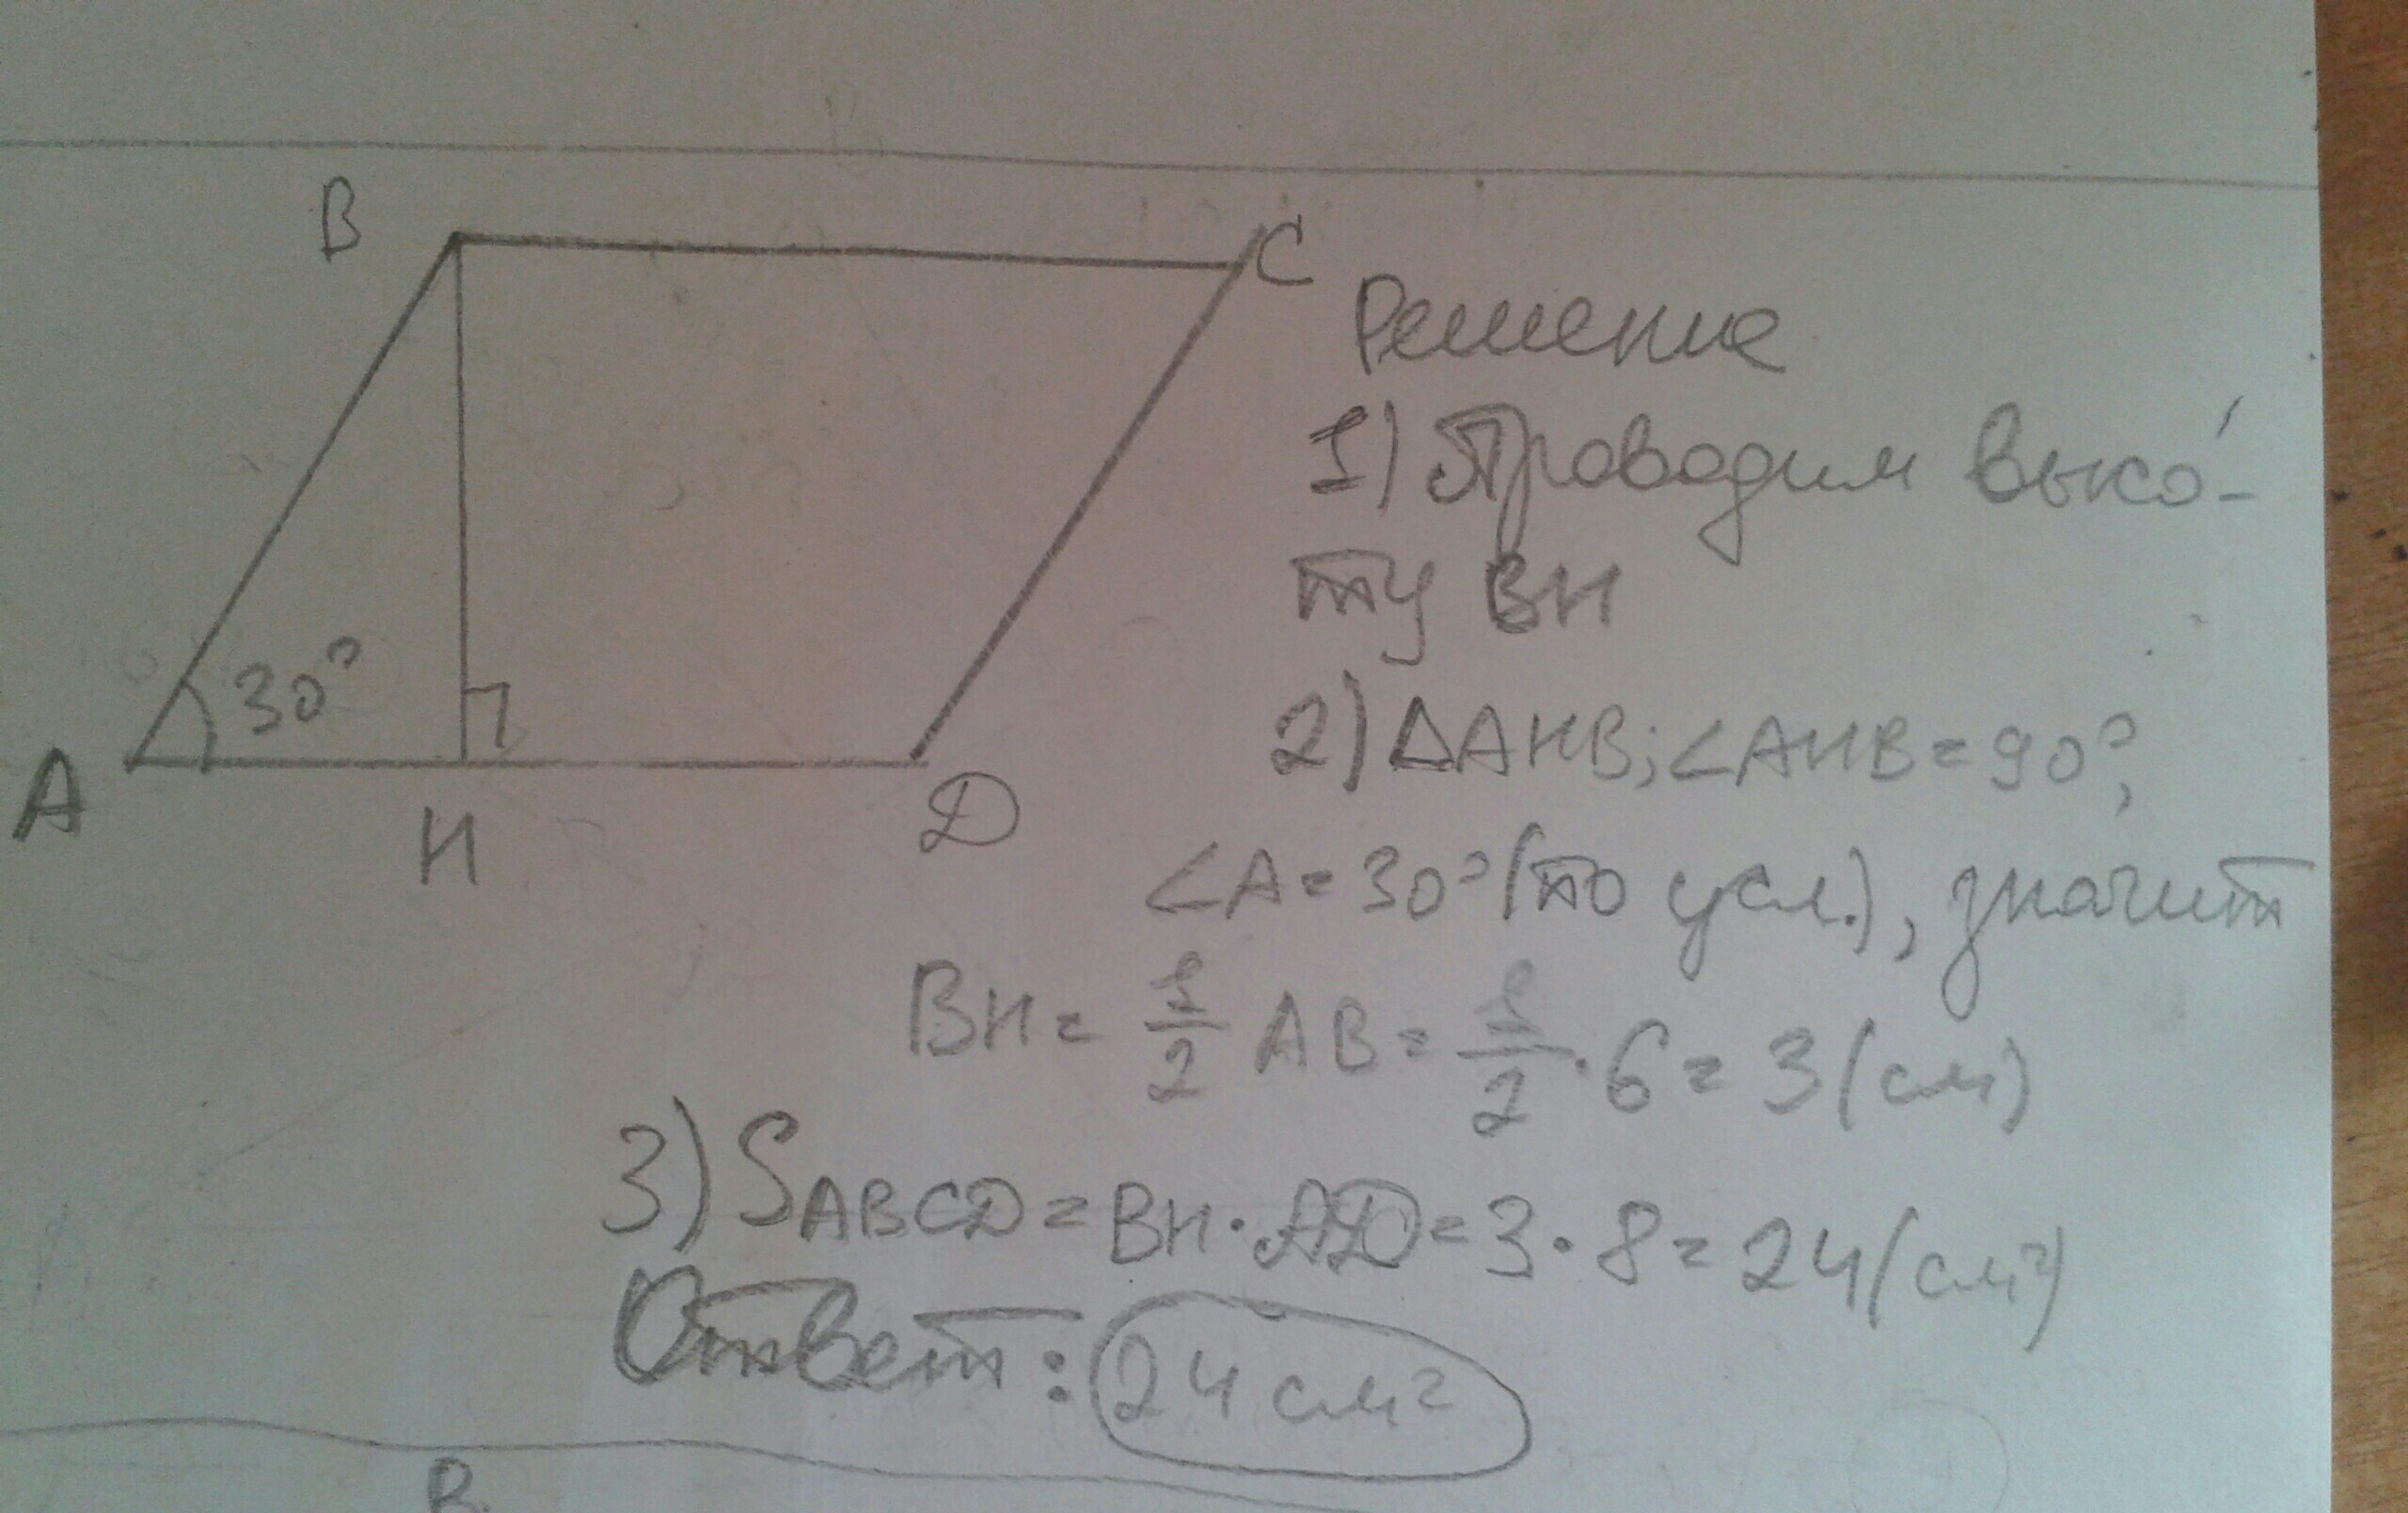 B
C
Решение
1) Проводим высо-
ту BH
30°
2) ΔAHB; ∠AHB = 90°,
A
H
D
∠A = 30° (по усл.), значит
BH = 1/2 AB = 1/2 · 6 = 3 (см)
3) SABCD = BH · AD = 3 · 8 = 24 (см²)
Ответ: 24 см²
B